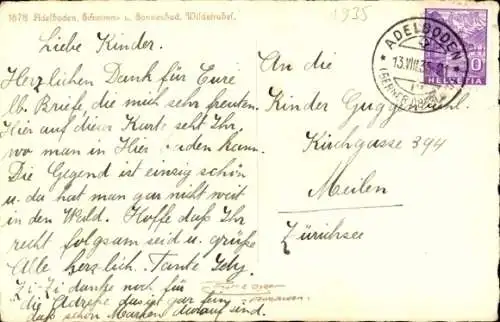 1878 Adelboden, Schwimm- u. Sonnenbad. Wildstrubel.
1935
Liebe Kinder.
Herzlichen Dank für Eure
lb. Briefe die mich sehr freuten.
Hier auf dieser Karte seht Ihr,
wo man in Hier baden kann.
Die Gegend ist einzig schön
u. da hat man gar nicht weit
in den Wald. Hoffe daß Ihr
recht folgsam seid u. grüße
Alle herzlich. Tante
danke noch für
die Adreße das ist gar fein,
daß schön Marken darauf sind.
An die
Kinder Guggenbühl.
Kirchgasse 394
Meilen
Zürichsee
ADELBODEN
13.VIII.35
HELVETIA
10